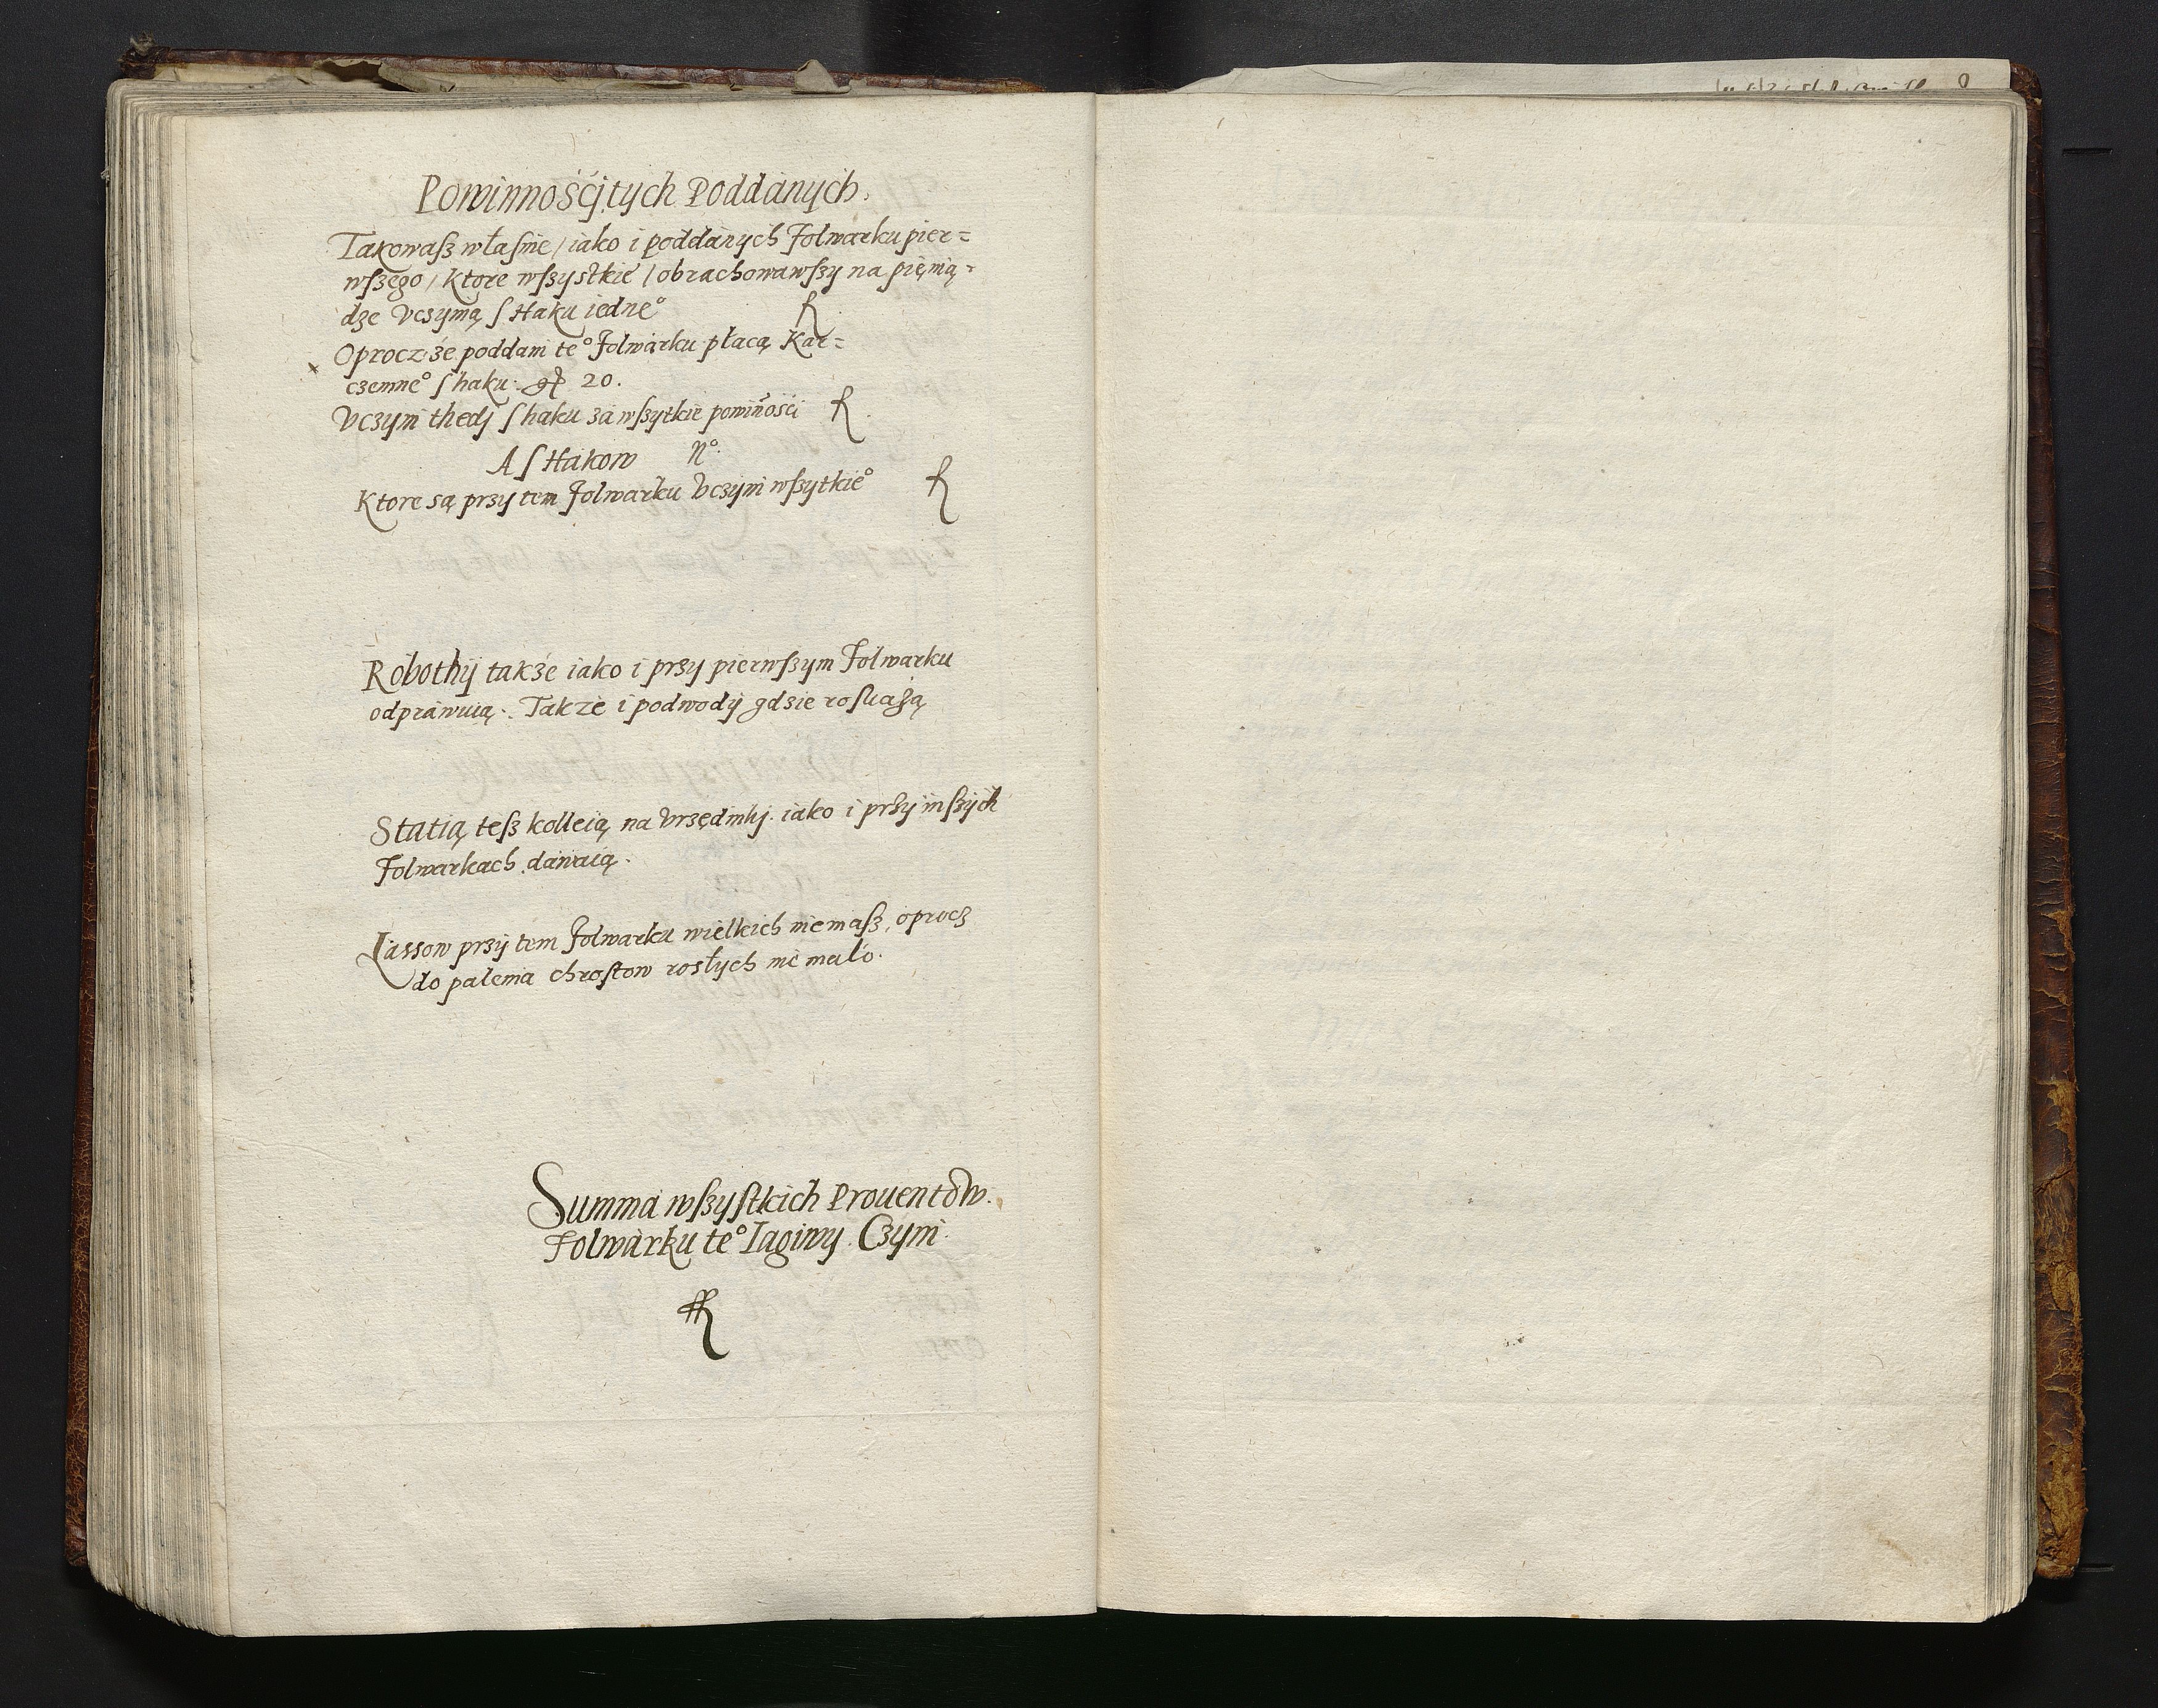 Powinnośćij tych Poddánych.
Takowaſz własnie / iako i poddánych Folwarku pier=
wſzego / Ktore wſzystkie / obrachowawſzy na pięnią=
dze Vcsymą ſ Haku iedne°
Oprocz że poddani te° Folwárku płacą Kar=
czemne° ſ haku. gł 20.
Vczyni thedj ſ haku zá wſzytkie powiňości
A ſ Hákow N°.
Ktore są przy tem Folwarku Vczyni wſzytkie°
Robothÿ także iako i przy pierwſzym Folwarku
odpráwuią. Także i podwodÿ gdzie roſkażą
Statią teſz kolleią na Vrzędniki iako i przy inſzÿch
Folwarkach dáwaią.
Lassow przÿ tem Folwarku wielkich niemaſz, oprocz
do palenia chroſtow rosłych nie máło.
Summá wſzyſtkich Prouentow.
Folwárku te° Iagiwy. Czyni.